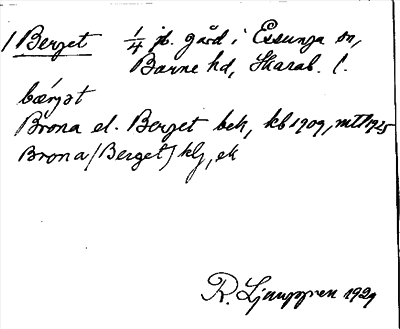 1 Berget 1/4 jb. gård i Essunga sn,
Barne hd, Skarab. l.
bær̀jət
Brona el. Berget bek, kb 1909, mtl 1925
Brona (Berget) klj, ek
R. Ljunggren 1929